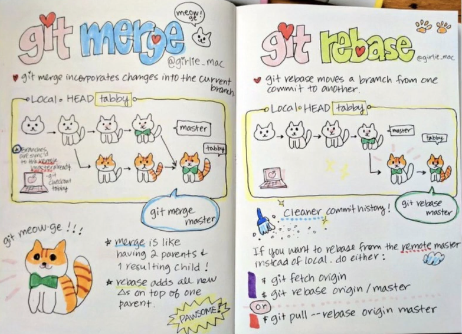 meow!
ge
git merge
@girlie_mac
git merge incorporates changes into the current
branch
Local HEAD tabby
master
tabby
git merge
master
git meow-ge!!!
* merge is like
having 2 parents &
1 resulting child!
* rebase adds all new
Δs on top of one
parent.
PAWSOME!
git rebase
@girlie_mac
git rebase moves a branch from one
commit to another.
Local HEAD tabby
master
tabby
git rebase
master
Cleaner commit history!
If you want to rebase from the remote master
instead of local. do either:
$ git fetch origin
$ git rebase origin/master
or
$ git pull --rebase origin master